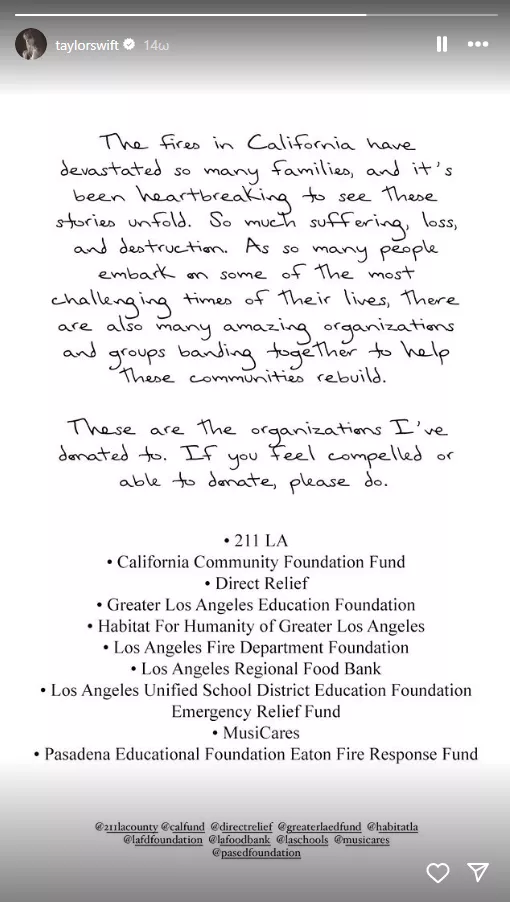 taylorswift 14ω
The fires in California have
devastated so many families, and it's
been heartbreaking to see these
stories unfold. So much suffering, loss,
and destruction. As so many people
embark on some of the most
challenging times of their lives, there
are also many amazing organizations
and groups banding together to help
these communities rebuild.
These are the organizations I've
donated to. If you feel compelled or
able to donate, please do.
• 211 LA
• California Community Foundation Fund
• Direct Relief
• Greater Los Angeles Education Foundation
• Habitat For Humanity of Greater Los Angeles
• Los Angeles Fire Department Foundation
• Los Angeles Regional Food Bank
• Los Angeles Unified School District Education Foundation
Emergency Relief Fund
• MusiCares
• Pasadena Educational Foundation Eaton Fire Response Fund
@211lacounty @calfund @directrelief @greaterlaedfund @habitatla
@lafdfoundation @lafoodbank @laschools @musicares
@pasedfoundation